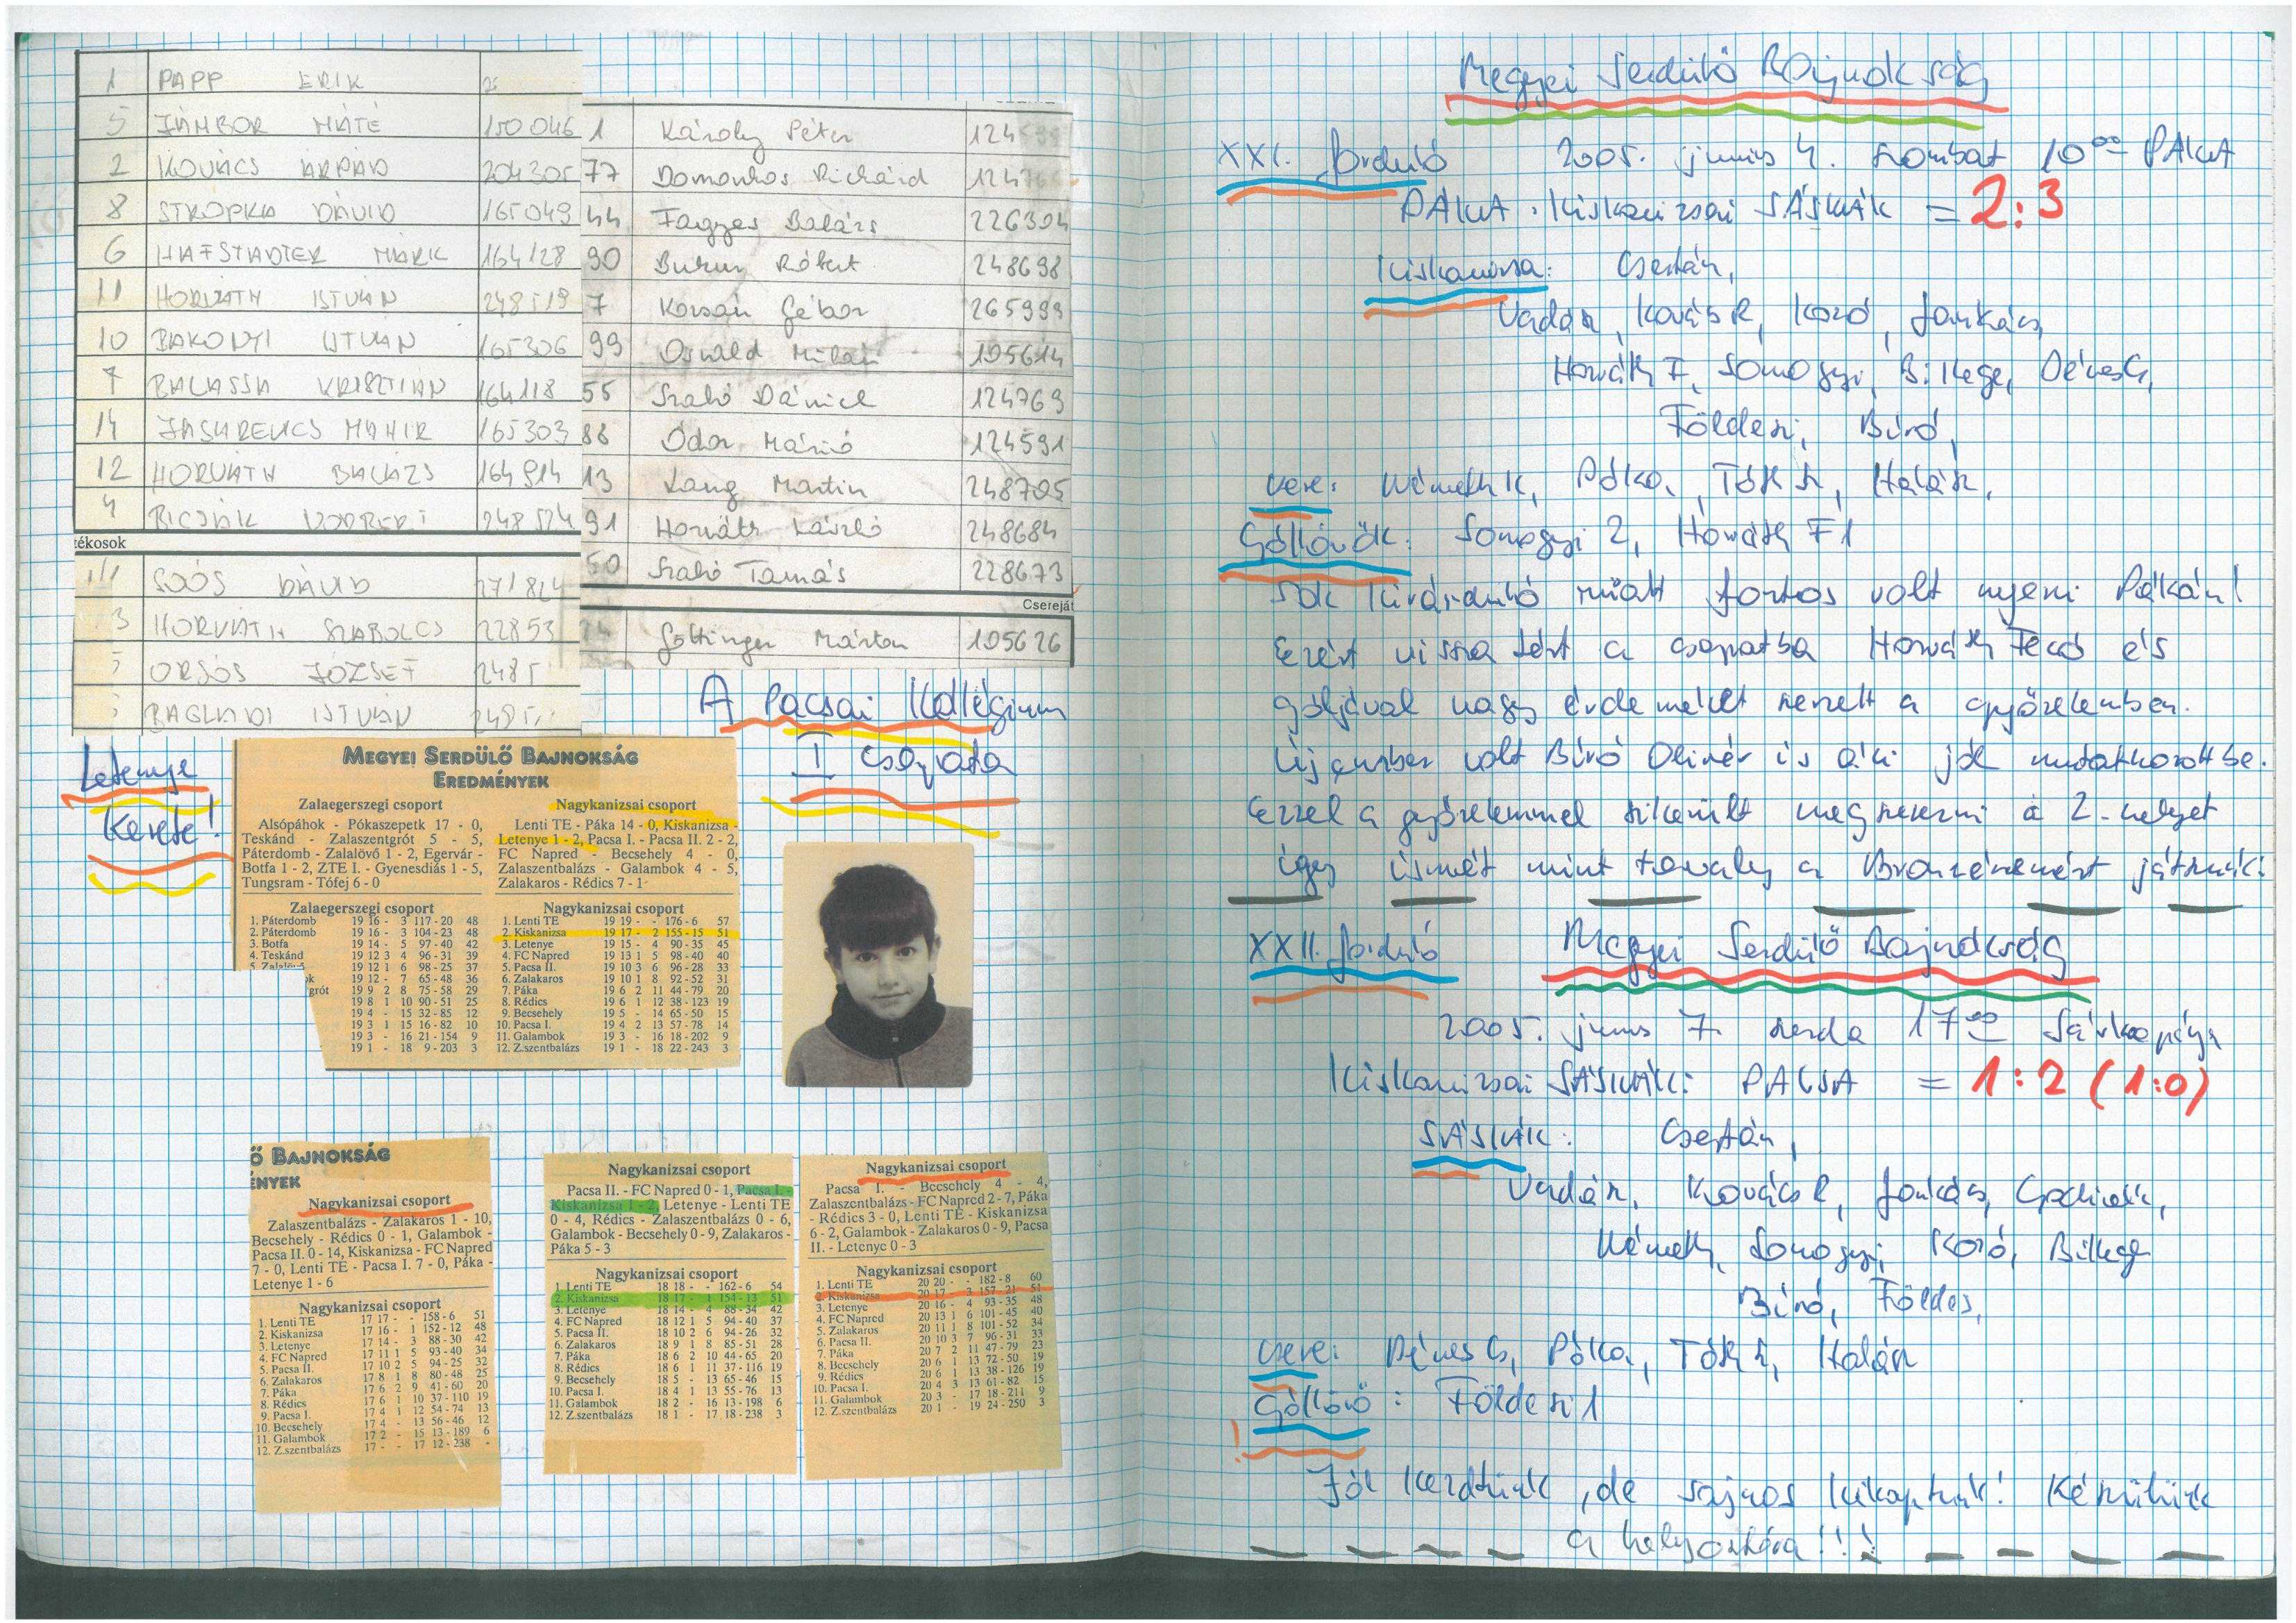 1 PAPP ERIK
5 JÁMBOR MÁTÉ 150046
2 KOVÁCS ÁRPÁD 204305
8 STROPKA DÁVID 165049
6 HAFSTADTER MÁRK 164128
11 HORVÁTH ISTVÁN 248519
10 BAKONYI ISTVÁN 165306
7 BALASSA KRISZTIÁN 164118
14 JASHREVICS MAHIR 165303
12 HORVÁTH BALÁZS 164914
4 248524
tékosok
SOÓS DÁVID
3 HORVÁTH SZABOLCS 22853
ORSÓS JÓZSEF 2485
ISTVÁN
1 Károly Péter 124
77 Domonkos Richárd 124
44 Fagyas Balázs 226304
90 Burun Róbert 248698
7 Korsán Gábor 265999
99 Osvald Milán 105614
55 Szabó Dániel 124769
88 Ódor Márió 124591
13 Lang Martin 248705
91 Horváth László 248684
50 Szabó Tamás 228673
Csereját
Göltinger Márton 105626
A Pacsai Kollégium
I csapata
Letenye
Kerete!
MEGYEI SERDÜLŐ BAJNOKSÁG
EREDMÉNYEK
Zalaegerszegi csoport
Alsópáhok - Pókaszepetk 17 - 0,
Teskánd - Zalaszentgrót 5 - 5,
Páterdomb - Zalalövő 1 - 2, Egervár -
Botfa 1 - 2, ZTE I. - Gyenesdiás 1 - 5,
Tungsram - Tófej 6 - 0
Zalaegerszegi csoport
1. Páterdomb 19 16 - 3 117-20 48
2. Páterdomb 19 16 - 3 104-23 48
3. Botfa 19 14 - 5 97-40 42
4. Teskánd 19 12 3 4 96-31 39
5. Zalalövő 19 12 1 6 98-25 37
ok 19 12 - 7 65-48 36
grót 19 9 2 8 75-58 29
19 8 1 10 90-51 25
19 4 - 15 32-85 12
19 3 1 15 16-82 10
19 3 - 16 21-154 9
19 1 - 18 9-203 3
Nagykanizsai csoport
Lenti TE - Páka 14 - 0, Kiskanizsa -
Letenye 1 - 2, Pacsa I. - Pacsa II. 2 - 2,
FC Napred - Becsehely 4 - 0,
Zalaszentbalázs - Galambok 4 - 5,
Zalakaros - Rédics 7 - 1
Nagykanizsai csoport
1. Lenti TE 19 19 - - 176-6 57
2. Kiskanizsa 19 17 - 2 155-15 51
3. Letenye 19 15 - 4 90-35 45
4. FC Napred 19 13 1 5 98-40 40
5. Pacsa II. 19 10 3 6 96-28 33
6. Zalakaros 19 10 1 8 92-52 31
7. Páka 19 6 2 11 44-79 20
8. Rédics 19 6 1 12 38-123 19
9. Becsehely 19 5 - 14 65-50 15
10. Pacsa I. 19 4 2 13 57-78 14
11. Galambok 19 3 - 16 18-202 9
12. Z.szentbalázs 19 1 - 18 22-243 3
Ő BAJNOKSÁG
ÉNYEK
Nagykanizsai csoport
Zalaszentbalázs - Zalakaros 1 - 10,
Becsehely - Rédics 0 - 1, Galambok -
Pacsa II. 0 - 14, Kiskanizsa - FC Napred
7 - 0, Lenti TE - Pacsa I. 7 - 0, Páka -
Letenye 1 - 6
Nagykanizsai csoport
1. Lenti TE 17 17 - - 158-6 51
2. Kiskanizsa 17 16 - 1 152-12 48
3. Letenye 17 14 - 3 88-30 42
4. FC Napred 17 11 1 5 93-40 34
5. Pacsa II. 17 10 2 5 94-25 32
6. Zalakaros 17 8 1 8 80-48 25
7. Páka 17 6 2 9 41-60 20
8. Rédics 17 6 1 10 37-110 19
9. Pacsa I. 17 4 1 12 54-74 13
10. Becsehely 17 4 - 13 56-46 12
11. Galambok 17 2 - 15 13-189 6
12. Z.szentbalázs 17 - - 17 12-238 -
Nagykanizsai csoport
Pacsa II. - FC Napred 0 - 1, Pacsa I. -
Kiskanizsa 1 - 2, Letenye - Lenti TE
0 - 4, Rédics - Zalaszentbalázs 0 - 6,
Galambok - Becsehely 0 - 9, Zalakaros -
Páka 5 - 3
Nagykanizsai csoport
1. Lenti TE 18 18 - - 162-6 54
2. Kiskanizsa 18 17 - 1 154-13 51
3. Letenye 18 14 - 4 88-34 42
4. FC Napred 18 12 1 5 94-40 37
5. Pacsa II. 18 10 2 6 94-26 32
6. Zalakaros 18 9 1 8 85-51 28
7. Páka 18 6 2 10 44-65 20
8. Rédics 18 6 1 11 37-116 19
9. Becsehely 18 5 - 13 65-46 15
10. Pacsa I. 18 4 1 13 55-76 13
11. Galambok 18 2 - 16 13-198 6
12. Z.szentbalázs 18 1 - 17 18-238 3
Nagykanizsai csoport
Pacsa I. - Becsehely 4 - 4,
Zalaszentbalázs - FC Napred 2 - 7, Páka
- Rédics 3 - 0, Lenti TE - Kiskanizsa
6 - 2, Galambok - Zalakaros 0 - 9, Pacsa
II. - Letenye 0 - 3
Nagykanizsai csoport
1. Lenti TE 20 20 - - 182-8 60
2. Kiskanizsa 20 17 - 3 157-21 51
3. Letenye 20 16 - 4 93-35 48
4. FC Napred 20 13 1 6 101-45 40
5. Zalakaros 20 11 1 8 101-52 34
6. Pacsa II. 20 10 3 7 96-31 33
7. Páka 20 7 2 11 47-79 23
8. Becsehely 20 6 1 13 72-50 19
9. Rédics 20 6 1 13 38-126 19
10. Pacsa I. 20 4 3 13 61-82 15
11. Galambok 20 3 - 17 18-211 9
12. Z.szentbalázs 20 1 - 19 24-250 3
Megyei Serdülő Bajnokság
XXI. forduló 2005. június 4. szombat 10⁰⁰ PÁKA
PÁKA : Kiskanizsai SÁSKÁK = 2:3
Kiskanizsa: Csertán,
Vadász, Kovács R, Kozó, Jankács,
Horváth F, Somogyi, Billege, Dénes G,
Földesi, Bíró,
csere: Németh K, Pólka, Tóth Sz, Halász,
Góllövők: Somogyi 2, Horváth F 1
Sok kiránduló miatt fontos volt nyerni Pákán!
Ezért vissza tért a csapatba Horváth Fecó és
góljával nagy érdemeket szerzett a győzelemben.
Új ember volt Bíró Olivér is aki jól mutatkozott be.
Ezzel a győzelemmel sikerült megszerezni a 2. helyet
így ismét mint tavaly a Bronzéremért játszunk:
XXII. forduló Megyei Serdülő Bajnokság
2005. június 7. szerda 17⁰⁰ Sáska pálya
Kiskanizsai SÁSKÁK: PACSA = 1:2 (1:0)
SÁSKÁK: Csertán,
Vadász, Kovács R, Jankács,
Németh, Somogyi, Kozó, Billege
Bíró, Földes,
csere: Dénes G, Pólka, Tóth Sz, Halász
Góllövő: Földesi 1
Jól kezdtünk, de sajnos kikaptunk! Készülünk
a helyosztóra!!!